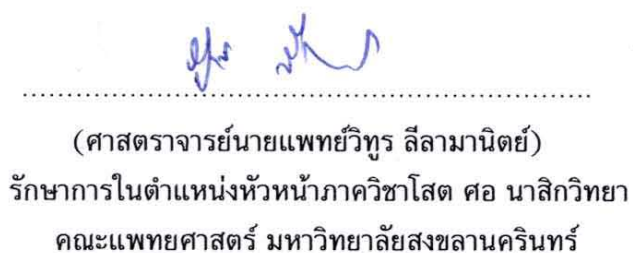 (ศาสตราจารย์นายแพทย์วิทูร ลีลามานิตย์)
รักษาการในตำแหน่งหัวหน้าภาควิชาโสต ศอ นาสิกวิทยา
คณะแพทยศาสตร์ มหาวิทยาลัยสงขลานครินทร์